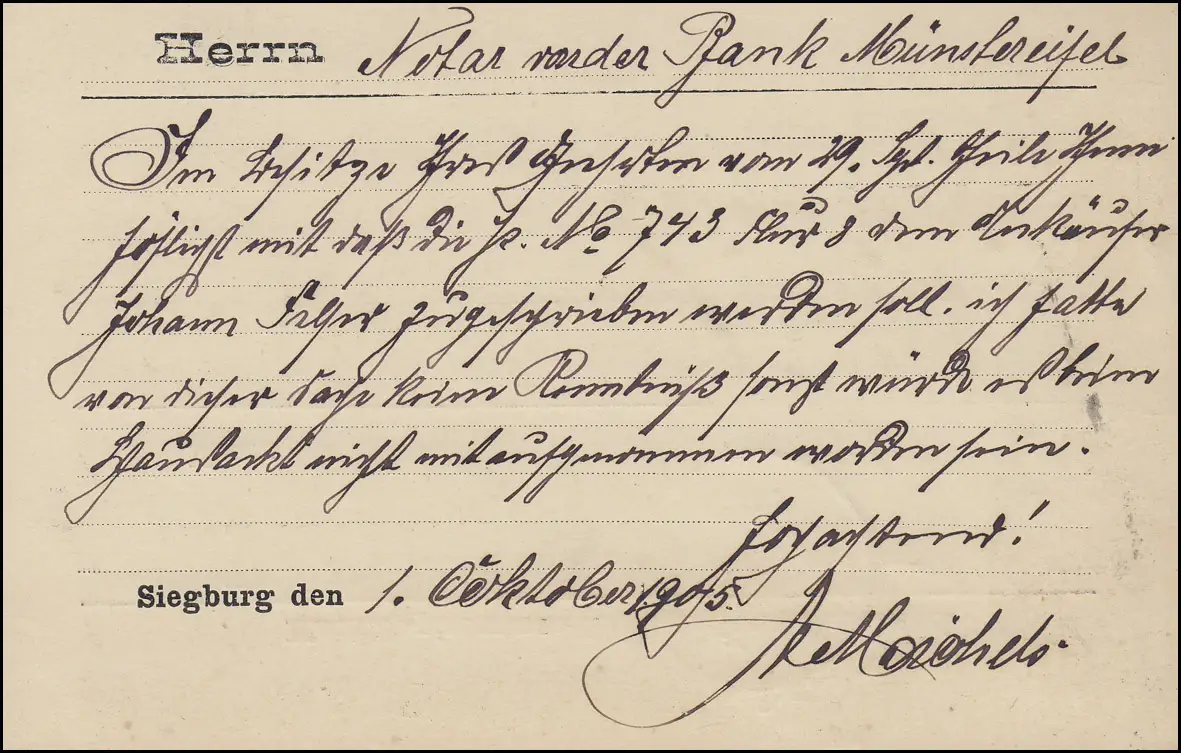 Herrn Notar vorder Bank Münstereifel
Im Besitze Ihres Geehrten vom 29. Spt. theile Ihnen
höflichst mit daß die P. No 743 Flur 8 dem Ankäufer
Johann Felser zugeschrieben werden soll. ich hatte
von dieser Sache keine Kenntniß sonst würde es beim
nicht mit aufgenommen worden sein.
Hochachtend!
Siegburg den 1. Oktober 1905.